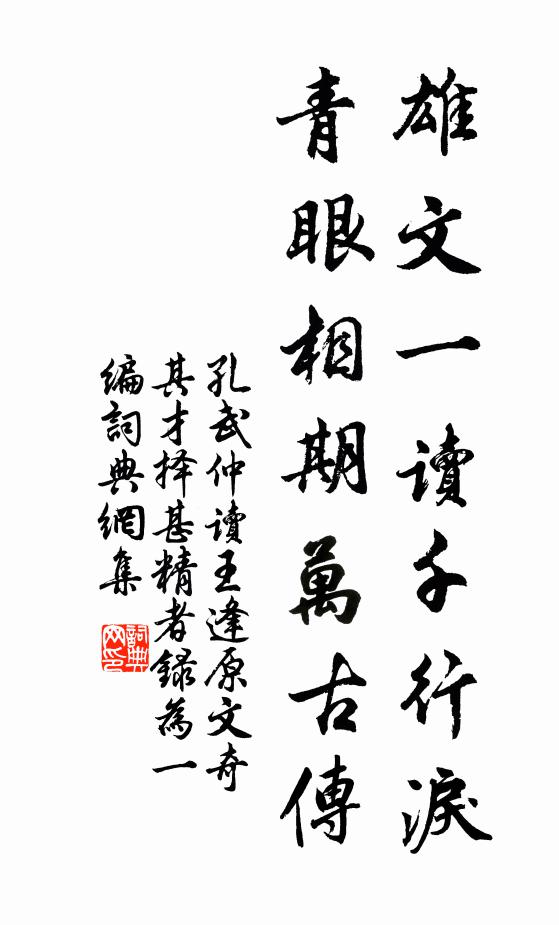 雄文一讀千行淚
青眼相期萬古傳
孔武仲讀王逢原文奇
其才择甚精者録為一
编詞典網集
詞典網印